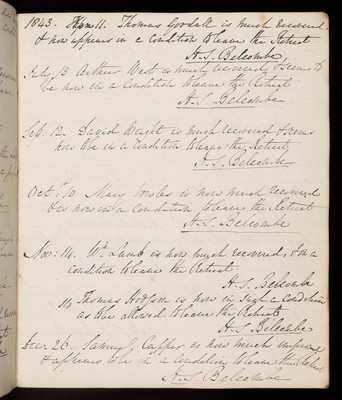 1843. 11. Thomas Goodall is much recovered
& now appears in a condition to leave the Retreat
H. S. Belcombe
July 13 Arthur West is much recovered & seems to
be now in a condition to leave the Retreat
H. S. Belcombe
Sep. 12. David Waight is much recovered & seems
now to be in a condition to leave the Retreat
H. S. Belcombe
Oct. 10. Mary Bowles is now much recovered
& is now in a condition to leave the Retreat
H. S. Belcombe
Nov: 14. Wm Lamb is now much recovered, & in a
condition to leave the Retreat.
H. S. Belcombe
14 Thomas Hodgson is now in such a condition
as to be allowed to leave the Retreat
H. S. Belcombe
Dec. 26. Samuel Capper is now much improved
& appears to be in a condition to leave the Retreat
H. S. Belcombe